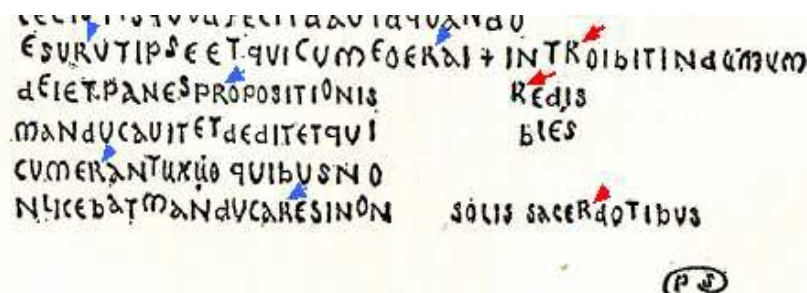 ESURUTIPSEET.QUICUMEOERAI + INTROIBITINdUMUM
dEIET.PANESPROPOSITIONIS REdIS
MANdUCAUITETdEdITETQUI bIES
CUMERANTUXUO QUIBUSNO
NLICEBATMANdUCARESINON SOLIS SACERdOTIbUS
PS